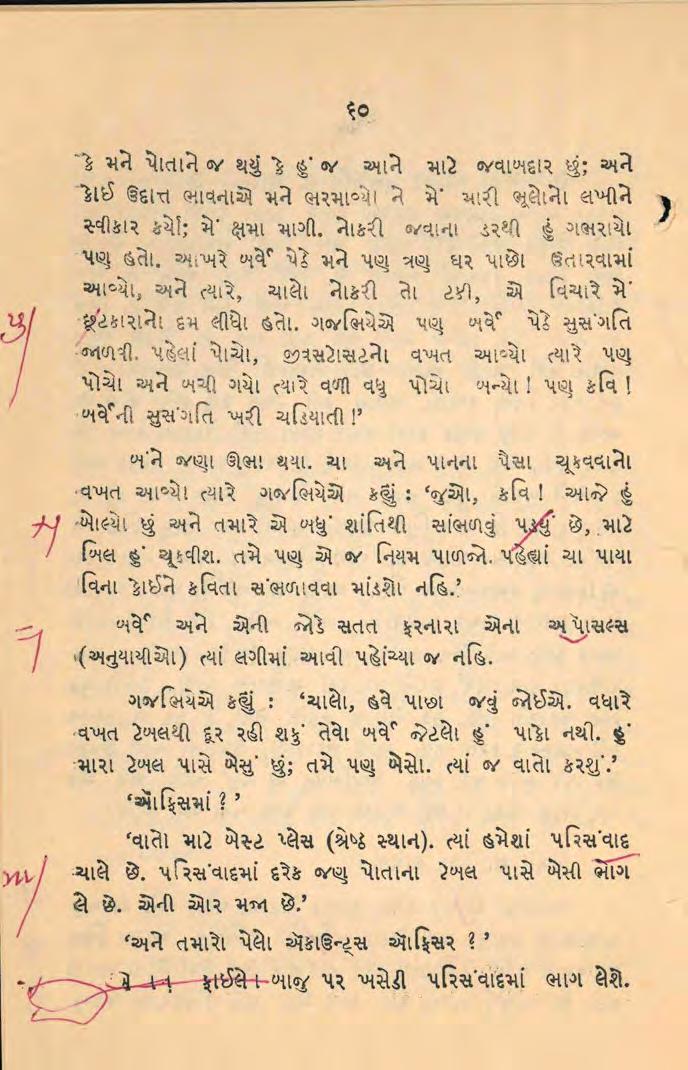 ૬૦
કે મને પોતાને જ થયું કે હું જ આને માટે જવાબદાર છું; અને
કોઈ ઉદાત્ત ભાવનાએ મને ભરમાવ્યો ને મેં મારી ભૂલોનો લખીને
સ્વીકાર કર્યો; મેં ક્ષમા માગી. નોકરી જવાના ડરથી હું ગભરાયો
પણ હતો. આખરે બર્વે પેઠે મને પણ ત્રણ ઘર પાછો ઉતારવામાં
આવ્યો, અને ત્યારે, ચાલો નોકરી તો ટકી, એ વિચારે મેં
છૂટકારાનો દમ લીધો હતો. ગજભિયેએ પણ બર્વે પેઠે સુસંગતિ
જાળવી. પહેલાં પોચો, જીવસટોસટનો વખત આવ્યો ત્યારે પણ
પોચો અને બચી ગયો ત્યારે વળી વધુ પોચો બન્યો! પણ કવિ!
બર્વેની સુસંગતિ ખરી ચડિયાતી!’
બંને જણા ઊભા થયા. ચા અને પાનના પૈસા ચૂકવવાનો
વખત આવ્યો ત્યારે ગજભિયેએ કહ્યું : ‘જુઓ, કવિ! આજે હું
બોલ્યો છું અને તમારે એ બધું શાંતિથી સાંભળવું પડ્યું છે, માટે
બિલ હું ચૂકવીશ. તમે પણ એ જ નિયમ પાળજો. પહેલાં ચા પાયા
વિના કોઈને કવિતા સંભળાવવા માંડશો નહિ.’
બર્વે અને એની જોડે સતત ફરનારા એના અપોસલ્સ
(અનુયાયીઓ) ત્યાં લગીમાં આવી પહોંચ્યા જ નહિ.
ગજભિયેએ કહ્યું : ‘ચાલો, હવે પાછા જવું જોઈએ. વધારે
વખત ટેબલથી દૂર રહી શકું તેવો બર્વે જેટલો હું પાકો નથી. હું
મારા ટેબલ પાસે બેસું છું; તમે પણ બેસો. ત્યાં જ વાતો કરશું.’
‘ઑફિસમાં ? ’
‘વાતો માટે બેસ્ટ પ્લેસ (શ્રેષ્ઠ સ્થાન). ત્યાં હમેશાં પરિસંવાદ
ચાલે છે. પરિસંવાદમાં દરેક જણ પોતાના ટેબલ પાસે બેસી ભાગ
લે છે. એની ઓર મજા છે.’
‘અને તમારો પેલો ઍકાઉન્ટ્સ ઑફિસર ? ’
ફાઈલો બાજુ પર ખસેડી પરિસંવાદમાં ભાગ લેશે.